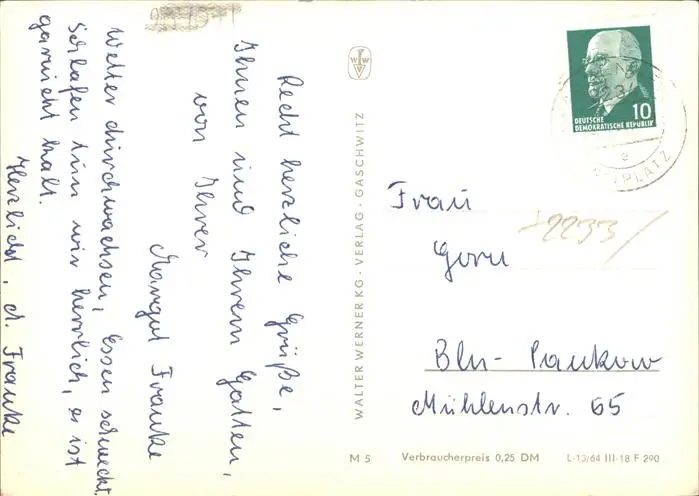 Recht herzliche Grüße,
Ihnen und Ihrem Gatten,
von Ihrer
Margut Franke
Wetter durchwachsen, Essen schmeckt.
Schlafen tun wir herrlich, es ist
garnicht kalt.
Herzlichst, M. Franke
WALTER WERNER KG · VERLAG · GASCHWITZ
WVW
DEUTSCHE
DEMOKRATISCHE REPUBLIK
10
e
PLATZ
Frau
Gorn
2233/
Bln-Pankow
Mühlenstr. 65
M 5 Verbraucherpreis 0,25 DM L-13/64 III-18 F 290